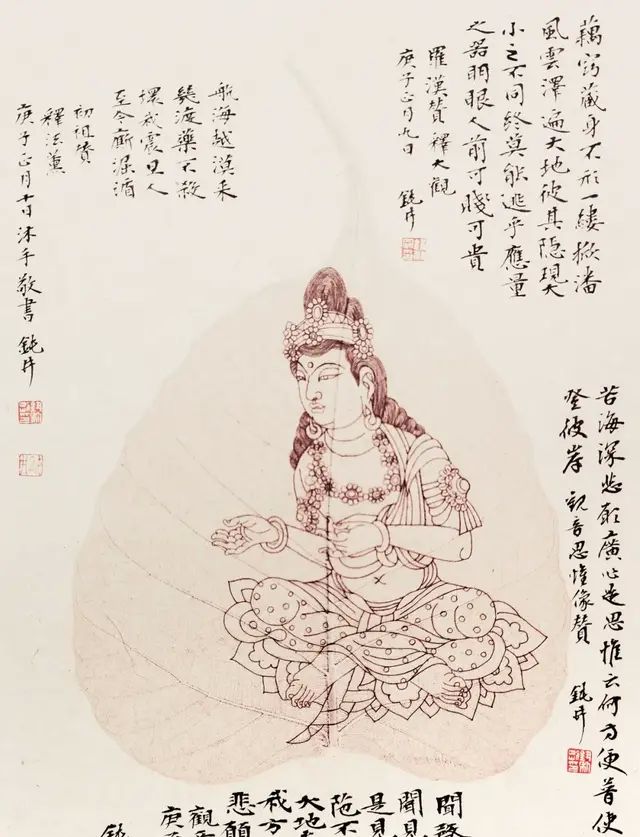 藕竅藏身不形一縷掀潘
風雲澤遍大地彼其隱現大
小之不同終莫能逃乎應量
之器明眼人前可賤可貴
羅漢贊 釋大觀
庚子正月九日
航海越漠來
渡藥不殺
壞我震旦人
至今
初祖贊
釋法薰
庚子正月十日沐手敬書
苦海深悲願廣心是思惟云何方便普使
登彼岸 觀音思惟像贊
聞
聞見
是見
不
大地
哉方
悲願
觀
庚